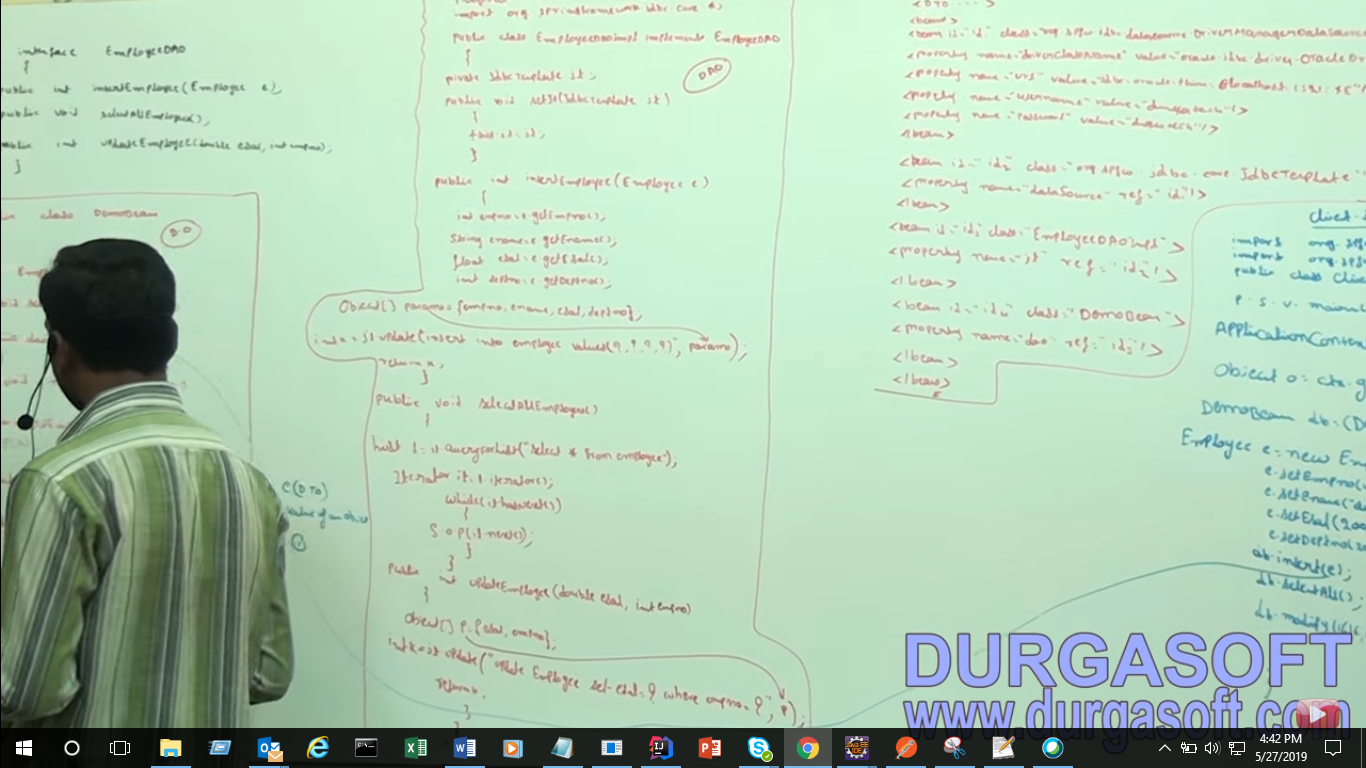 interface EmployeeDAO
{
public int insertEmployee(Employee e);
public void selectAllEmployee();
public int updateEmployee(double esal, int empno);
}
class DemoBean
D.O
C(DTO)
value of an object
import org.springframework.jdbc.core.*;
public class EmployeeDAOImpl implements EmployeeDAO
{
DAO
private JdbcTemplate jt;
public void setJt(JdbcTemplate jt)
{
this.jt=jt;
}
public int insertEmployee(Employee e)
{
int empno=e.getEmpno();
String ename=e.getEname();
float esal=e.getEsal();
int deptno=e.getDeptno();
Object[] params={empno, ename, esal, deptno};
int x=jt.update("insert into employee values(?,?,?,?)", params);
return x;
}
public void selectAllEmployee()
{
List l=jt.queryForList("select * from employee");
Iterator it=l.iterator();
while(it.hasNext())
{
S.o.p(it.next());
}
}
public int updateEmployee(double esal, int empno)
{
Object[] p={esal, empno};
int x=jt.update("update Employee set esal=? where empno=?", p);
return x;
}
<DTD --- >
<beans>
<bean id="id1" class="org.spfw.jdbc.datasource.DriverManagerDataSource
<property name="driverClassName" value="oracle.jdbc.driver.OracleDr
<property name="url" value="jdbc:oracle:thin:@localhost:1521:XE"/
<property name="username" value="durgatech"/>
<property name="password" value="durgatech"/>
</bean>
<bean id="id2" class="org.spfw.jdbc.core.JdbcTemplate"
<property name="dataSource" ref="id1"/>
</bean>
<bean id="id3" class="EmployeeDAOImpl">
<property name="jt" ref="id2"/>
</bean>
<bean id="id4" class="DemoBean">
<property name="dao" ref="id3"/>
</bean>
</beans>
Client.j
import org.spf
import org.spf
public class Clie
P.S.V. main(
ApplicationContex
Object o=ctx.g
DemoBean db=(D
Employee e=new Em
e.setEmpno(
e.setEname("d
e.setEsal(200
e.setDeptno(
db.insert(e);
db.selectAll();
db.modify(
DURGASOFT
www.durgasoft.com
4:42 PM
5/27/2019